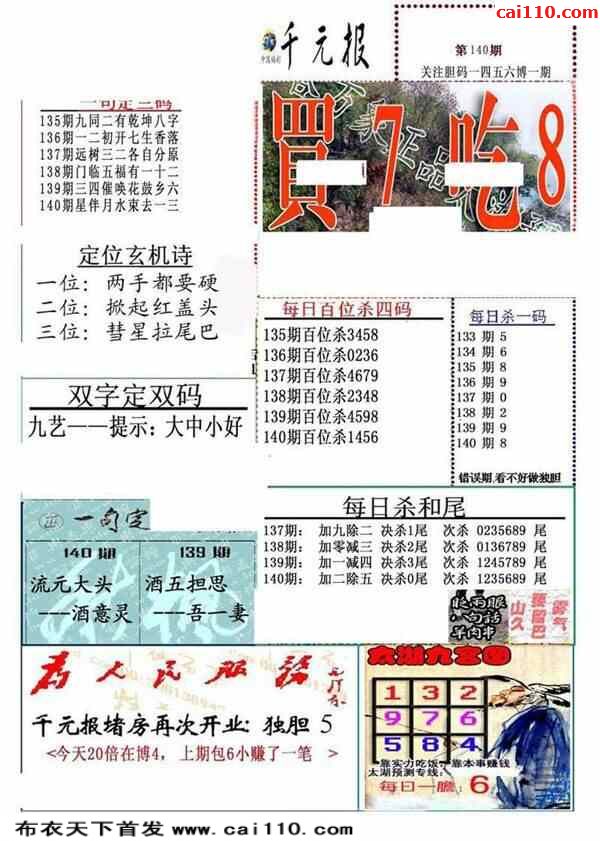 www.
cai110.com
千元报
第140期
关注胆码一四五六博一期
一句定三码
135期九同二有乾坤八字
136期一二初开七生香落
137期远树三二各自分原
138期门临五福有一十二
139期三四催唤花鼓乡六
140期星伴月水束去一三
買7吃8
定位玄机诗
一位: 两手都要硬
二位: 掀起红盖头
三位: 彗星拉尾巴
每日百位杀四码
135期百位杀3458
136期百位杀0236
137期百位杀4679
138期百位杀2348
139期百位杀4598
140期百位杀1456
每日杀一码
133 期 5
134 期 6
135 期 8
136 期 9
137 期 0
138 期 2
139 期 9
140 期 8
错误期,看不好做独胆
双字定双码
九艺——提示:大中小好
每日杀和尾
137期: 加九除二 决杀1尾 次杀 0235689 尾
138期: 加零减三 决杀2尾 次杀 0136789 尾
139期: 加一减四 决杀3尾 次杀 1245789 尾
140期: 加二除五 决杀0尾 次杀 1235689 尾
一句定
140期
流元大头
---酒意灵
139期
酒五担思
---吾一妻
山久
张留巴
雾气
为人民服務
千元报堵房再次开业: 独胆 5
<今天20倍在博4, 上期包6小赚了一笔 >
太湖九宫图
1 3 2
9 7 6
5 8 4
靠实力吃饭,靠本事赚钱
太湖预测专线:
每日一胆: 6
布衣天下首发 www.cai110.com